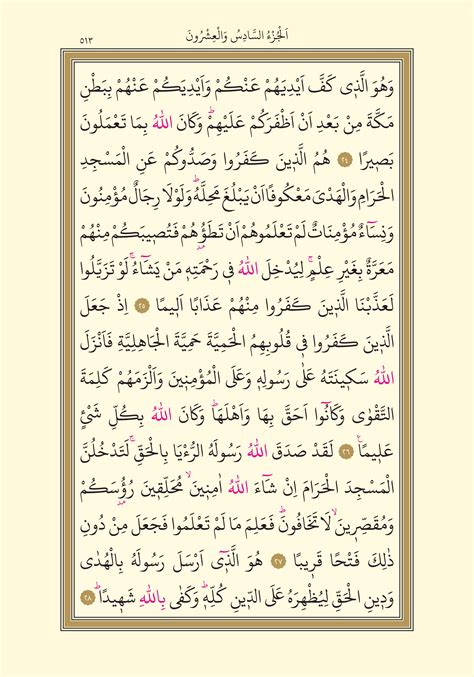 اَلْجُزْءُ السَّادِسُ وَالْعِشْرُونَ
٥١٣
وَهُوَ الَّذ۪ي كَفَّ اَيْدِيَهُمْ عَنْكُمْ وَاَيْدِيَكُمْ عَنْهُمْ بِبَطْنِ
مَكَّةَ مِنْ بَعْدِ اَنْ اَظْفَرَكُمْ عَلَيْهِمْۜ وَكَانَ اللّٰهُ بِمَا تَعْمَلُونَ
بَص۪يرًا ﴿٢٤﴾ هُمُ الَّذ۪ينَ كَفَرُوا وَصَدُّوكُمْ عَنِ الْمَسْجِدِ
الْحَرَامِ وَالْهَدْيَ مَعْكُوفًا اَنْ يَبْلُغَ مَحِلَّهُۜ وَلَوْلَا رِجَالٌ مُؤْمِنُونَ
وَنِسَٓاءٌ مُؤْمِنَاتٌ لَمْ تَعْلَمُوهُمْ اَنْ تَطَؤُ۫هُمْ فَتُص۪يبَكُمْ مِنْهُمْ
مَعَرَّةٌ بِغَيْرِ عِلْمٍۚ لِيُدْخِلَ اللّٰهُ ف۪ي رَحْمَتِه۪ مَنْ يَشَٓاءُۚ لَوْ تَزَيَّلُوا
لَعَذَّبْنَا الَّذ۪ينَ كَفَرُوا مِنْهُمْ عَذَابًا اَل۪يمًا ﴿٢٥﴾ اِذْ جَعَلَ
الَّذ۪ينَ كَفَرُوا ف۪ي قُلُوبِهِمُ الْحَمِيَّةَ حَمِيَّةَ الْجَاهِلِيَّةِ فَاَنْزَلَ
اللّٰهُ سَك۪ينَتَهُ عَلٰى رَسُولِه۪ وَعَلَى الْمُؤْمِن۪ينَ وَاَلْزَمَهُمْ كَلِمَةَ
التَّقْوٰى وَكَانُٓوا اَحَقَّ بِهَا وَاَهْلَهَاۜ وَكَانَ اللّٰهُ بِكُلِّ شَيْءٍ
عَل۪يمًا۟ ﴿٢٦﴾ لَقَدْ صَدَقَ اللّٰهُ رَسُولَهُ الرُّءْيَا بِالْحَقِّۚ لَتَدْخُلُنَّ
الْمَسْجِدَ الْحَرَامَ اِنْ شَٓاءَ اللّٰهُ اٰمِن۪ينَۙ مُحَلِّق۪ينَ رُؤُ۫سَكُمْ
وَمُقَصِّر۪ينَۙ لَا تَخَافُونَۜ فَعَلِمَ مَا لَمْ تَعْلَمُوا فَجَعَلَ مِنْ دُونِ
ذٰلِكَ فَتْحًا قَر۪يبًا ﴿٢٧﴾ هُوَ الَّذ۪ٓي اَرْسَلَ رَسُولَهُ بِالْهُدٰى
وَد۪ينِ الْحَقِّ لِيُظْهِرَهُ عَلَى الدّ۪ينِ كُلِّه۪ۜ وَكَفٰى بِاللّٰهِ شَه۪يدًاۜ ﴿٢٨﴾